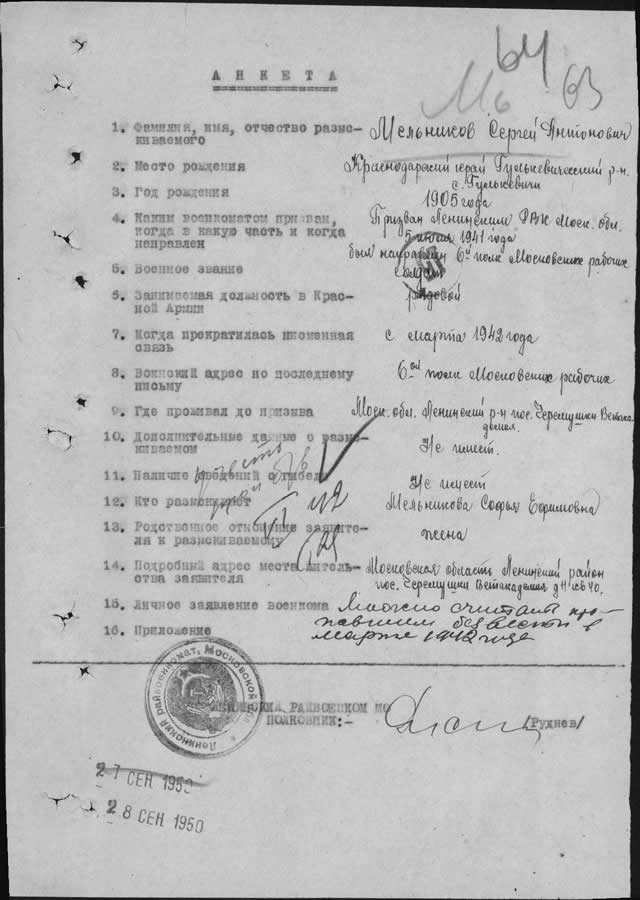 64
63
АНКЕТА
1. Фамилия, имя, отчество разыс-
киваемого
Мельников Сергей Антонович
2. Место рождения
Краснодарский край Гулькевический р-н.
с. Гулькевичи
3. Год рождения
1905 года
4. Каким военкоматом призван,
когда в какую часть и когда
направлен
Призван Ленинским РВК Моск. обл.
5 июля 1941 года
был направлен 6й полк Московских рабочих
5. Военное звание
солдат
6. Занимаемая должность в Крас-
ной Армии
рядовой
7. Когда прекратилась письменная
связь
с марта 1942 года
8. Воинский адрес по последнему
письму
6ой полк Московских рабочих
9. Где проживал до призыва
Моск. обл. Ленинский р-н пос. Черемушки Ветака-
демия.
10. Дополнительные данные о разыс-
киваемом
Не имеет.
11. Наличие сведений о гибели
Не имеет
12. Кто разыскивает
Мельникова Софья Ефимовна
13. Родственное отношение заявите-
ля к разыскиваемому
жена
14. Подробный адрес места житель-
ства заявителя
Московская область Ленинский район
пос. Черемушки Ветакадемия д 11 кв 40.
15. Личное заявление военкома
Можно считать про-
павшим без вести в
марте 1942 года
16. Приложение
Ленинский райвоенкомат, Московской
ЛЕНИНСКИЙ РАЙВОЕНКОМ МО
ПОЛКОВНИК:-
/Руднев/
27 СЕН 1950
28 СЕН 1950